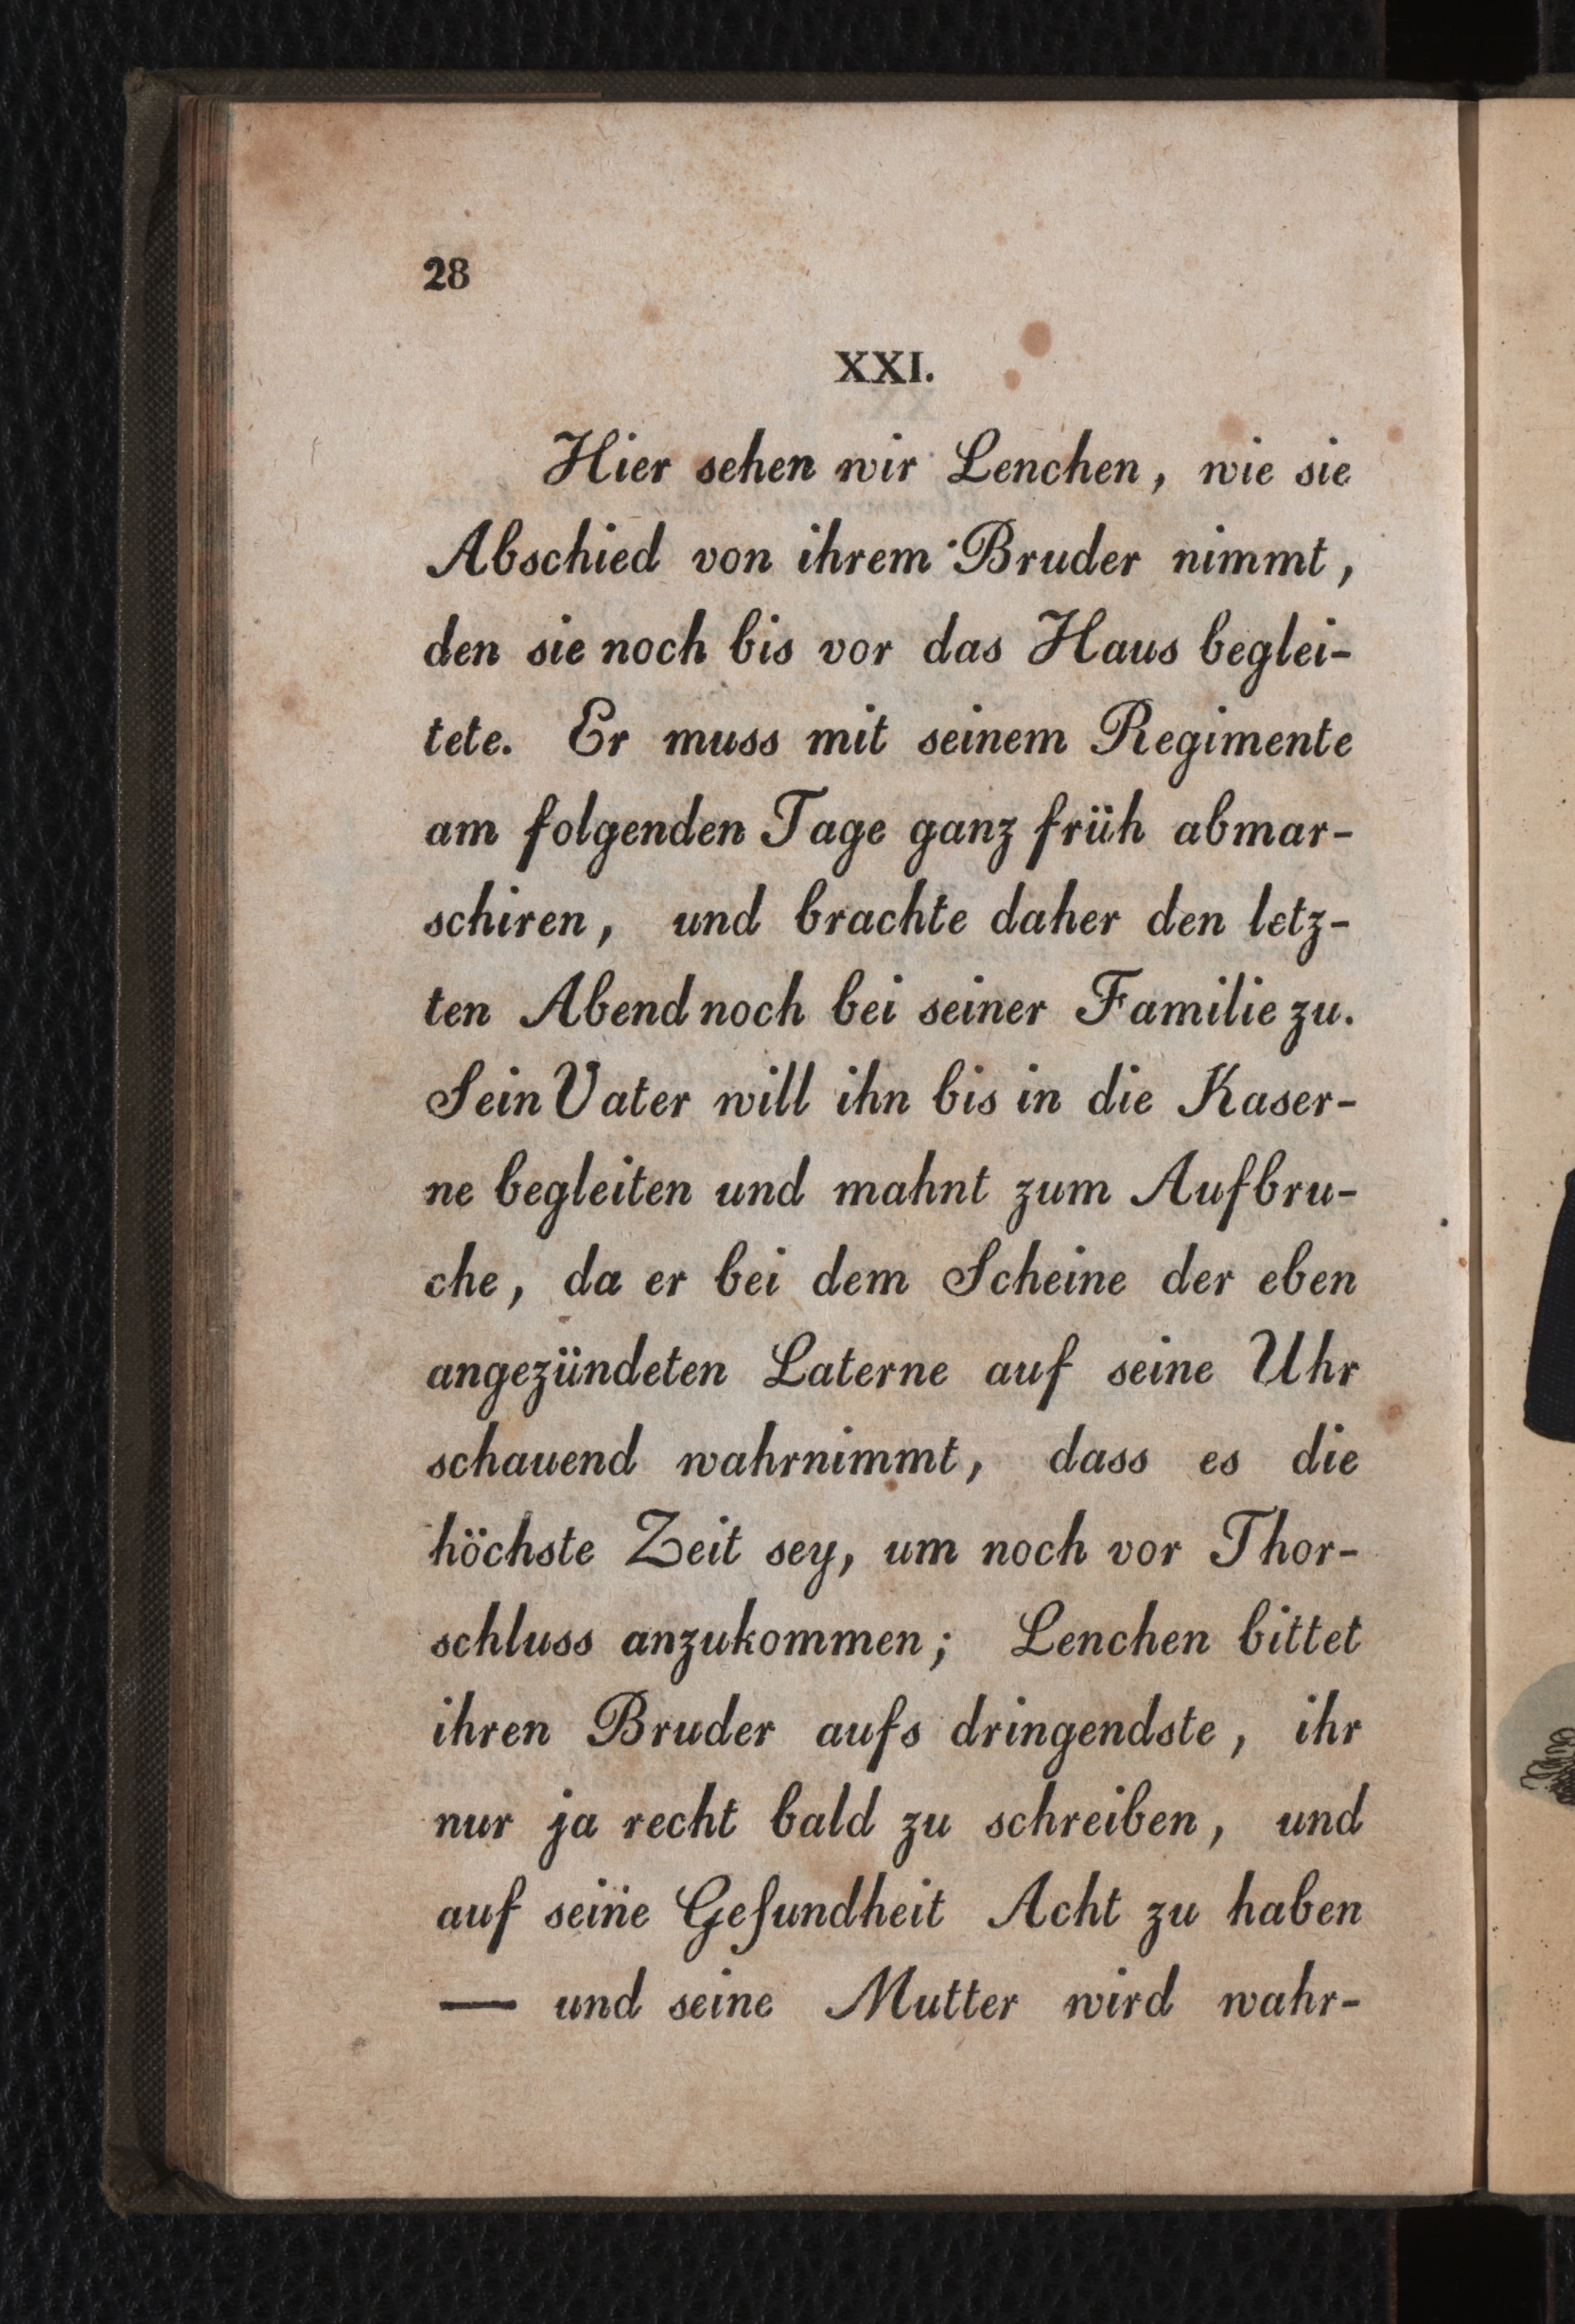 28
XXI.
Hier sehen wir Lenchen, wie sie
Abschied von ihrem Bruder nimmt,
den sie noch bis vor das Haus beglei-
tete. Er muss mit seinem Regimente
am folgenden Tage ganz früh abmar-
schiren, und brachte daher den letz-
ten Abend noch bei seiner Familie zu.
Sein Vater will ihn bis in die Kaser-
ne begleiten und mahnt zum Aufbru-
che, da er bei dem Scheine der eben
angezündeten Laterne auf seine Uhr
schauend wahrnimmt, dass es die
höchste Zeit sey, um noch vor Thor-
schluss anzukommen; Lenchen bittet
ihren Bruder aufs dringendste, ihr
nur ja recht bald zu schreiben, und
auf seine Geſundheit Acht zu haben
— und seine Mutter wird wahr-